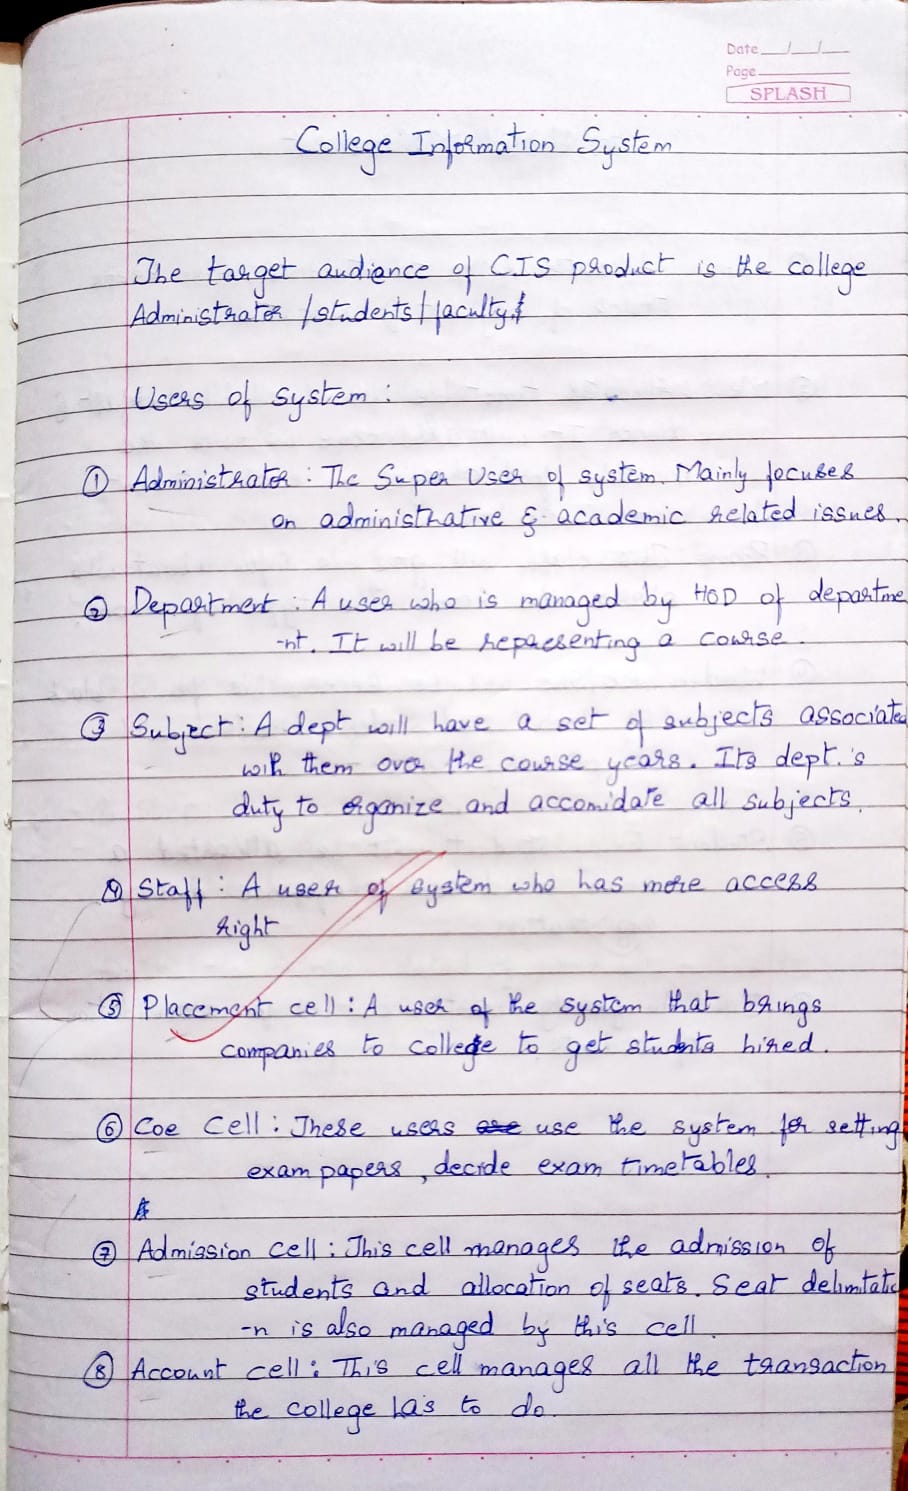 Date __/__/__
Page
SPLASH
College Information System
The target audiance of CIS product is the college
Administrator / students / faculty.
Users of system :
① Administrator : The Super User of system. Mainly focuses
on administrative & academic related issues.
② Department : A user who is managed by HOD of departme
-nt. It will be representing a course.
③ Subject : A dept will have a set of subjects associated
with them over the course years. Its dept.'s
duty to organize and accomidate all subjects.
④ Staff : A user of system who has more access
right
⑤ Placement cell : A user of the system that brings
companies to college to get students hired.
⑥ Coe Cell : These users use the system for setting
exam papers, decide exam timetables.
⑦ Admission cell : This cell manages the admission of
students and allocation of seats. Seat delimitatio
-n is also managed by this cell.
⑧ Account cell : This cell manages all the transaction
the college has to do.